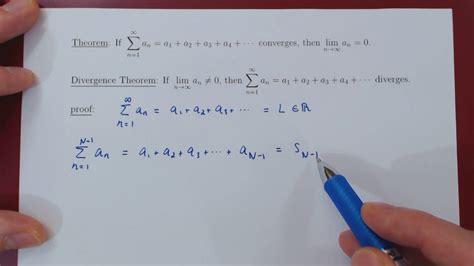 Theorem: If ∑_{n=1}^{∞} a_n = a_1 + a_2 + a_3 + a_4 + ⋯ converges, then lim_{n→∞} a_n = 0.
Divergence Theorem: If lim_{n→∞} a_n ≠ 0, then ∑_{n=1}^{∞} a_n = a_1 + a_2 + a_3 + a_4 + ⋯ diverges.
proof: ∑_{n=1}^{∞} a_n = a_1 + a_2 + a_3 + ⋯ = L ∈ ℝ
∑_{n=1}^{N-1} a_n = a_1 + a_2 + a_3 + ⋯ + a_{N-1} = S_{N-1}